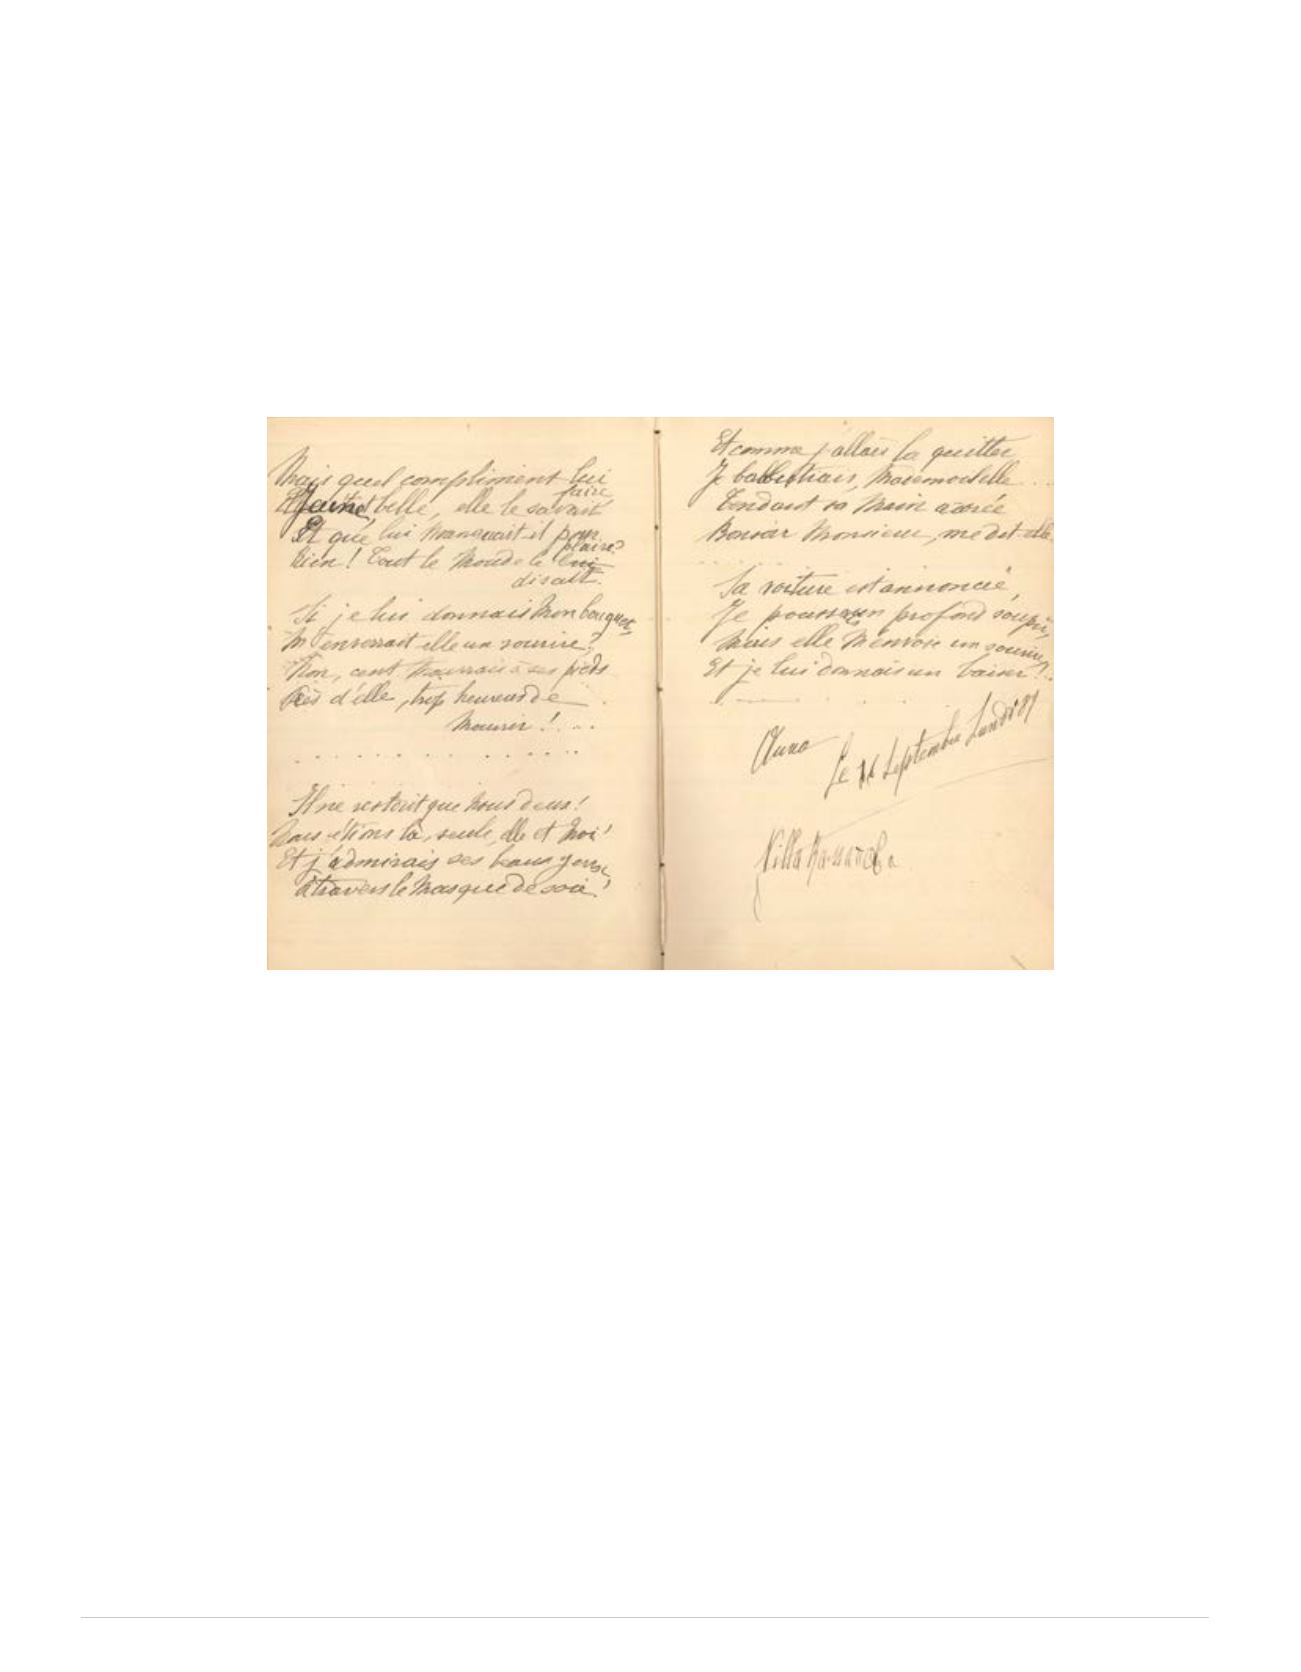 Mais quel compliment lui
faire
belle, elle le savait
Et que lui manquait il pour
plaire?
Rien! Tout le Monde le lui
disait.
Si je lui donnais Mon bouquet,
M'enverrait elle un sourire?
Non, cent Mourrais à ses pieds
Près d'elle, trop heureux de
Mourir! ...
Il ne restait que Nous deux!
Nous étions là, seuls, elle et Moi!
Et j'admirais ses beaux yeux,
à travers le Masque de soie!
Et comme j'allais la quitter
Je balbutiais, Mademoiselle ...
Tendant sa Main
Bonsoir Monsieur, me dit-elle.
Sa voiture est annoncée,
Je poussais un profond soupir,
Mais elle M'envoie un sourire,
Et je lui donnais un baiser! ..
Le Septembre Lundi
Villa